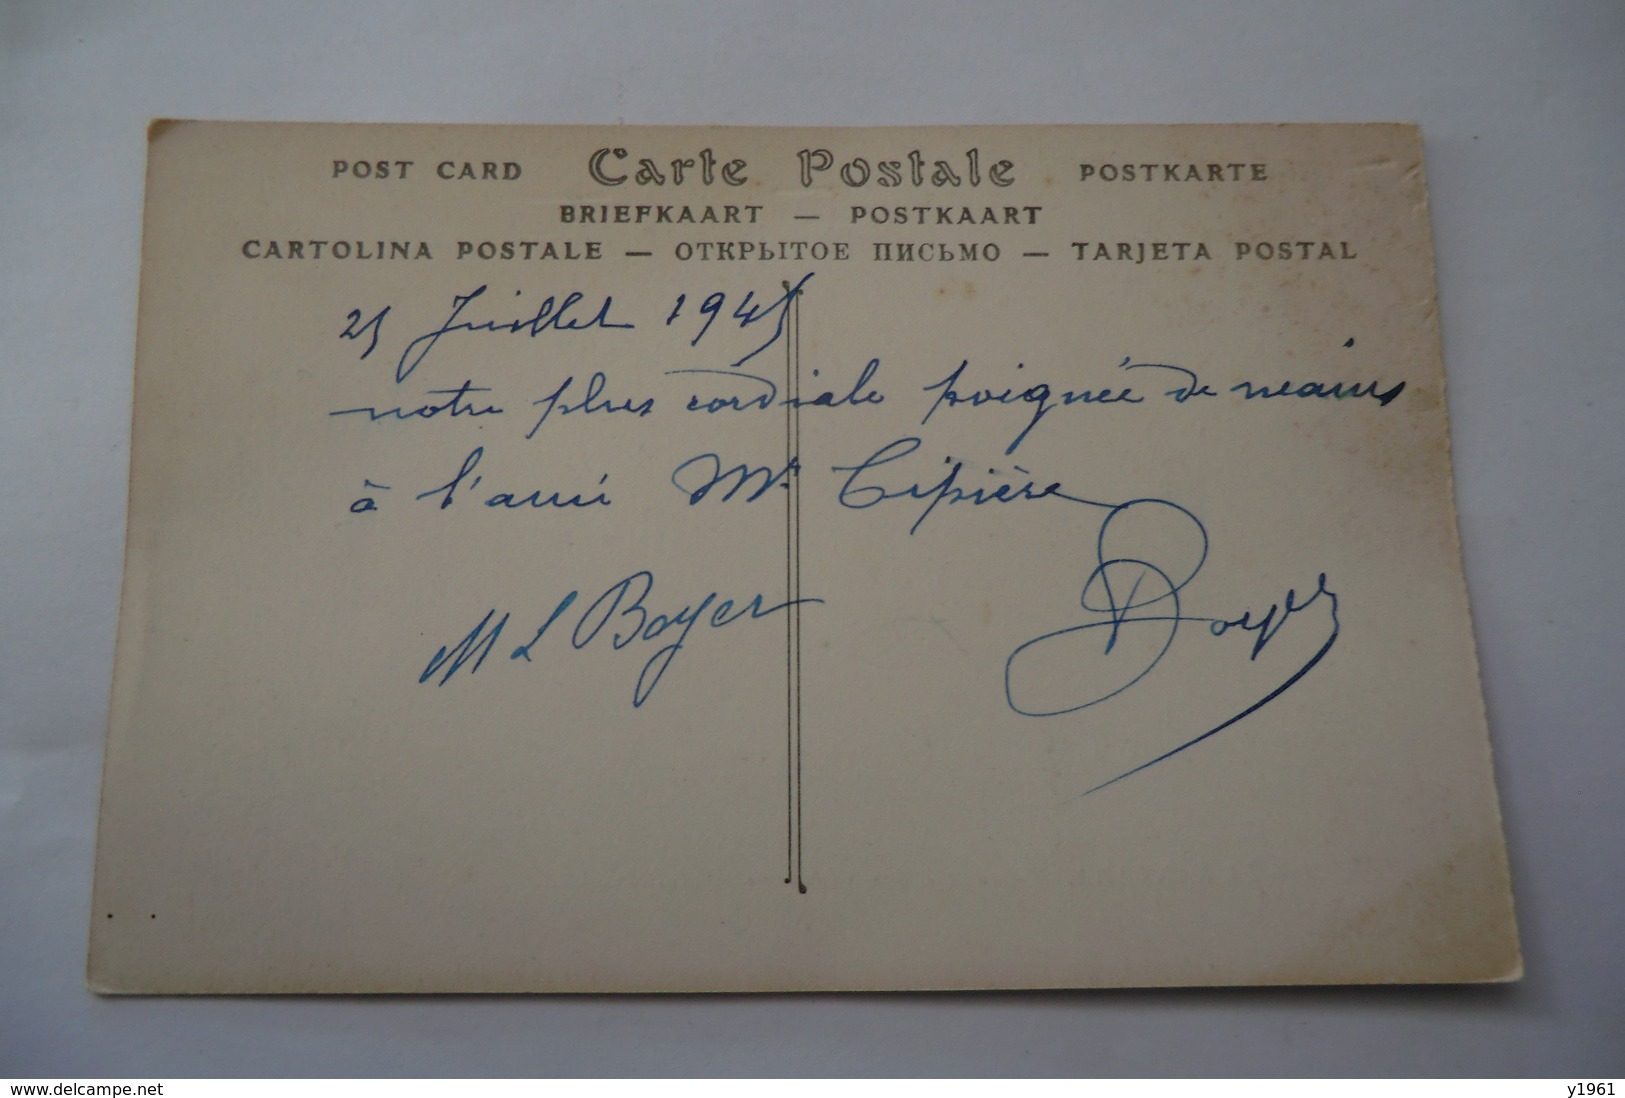 POST CARD Carte Postale POSTKARTE
BRIEFKAART — POSTKAART
CARTOLINA POSTALE — ОТКРЫТОЕ ПИСЬМО — TARJETA POSTAL
25 Juillet 1945
notre plus cordiale poignée de mains
à l'ami Mr Cipière
M L Boyer
Boyer
www.delcampe.net
y1961